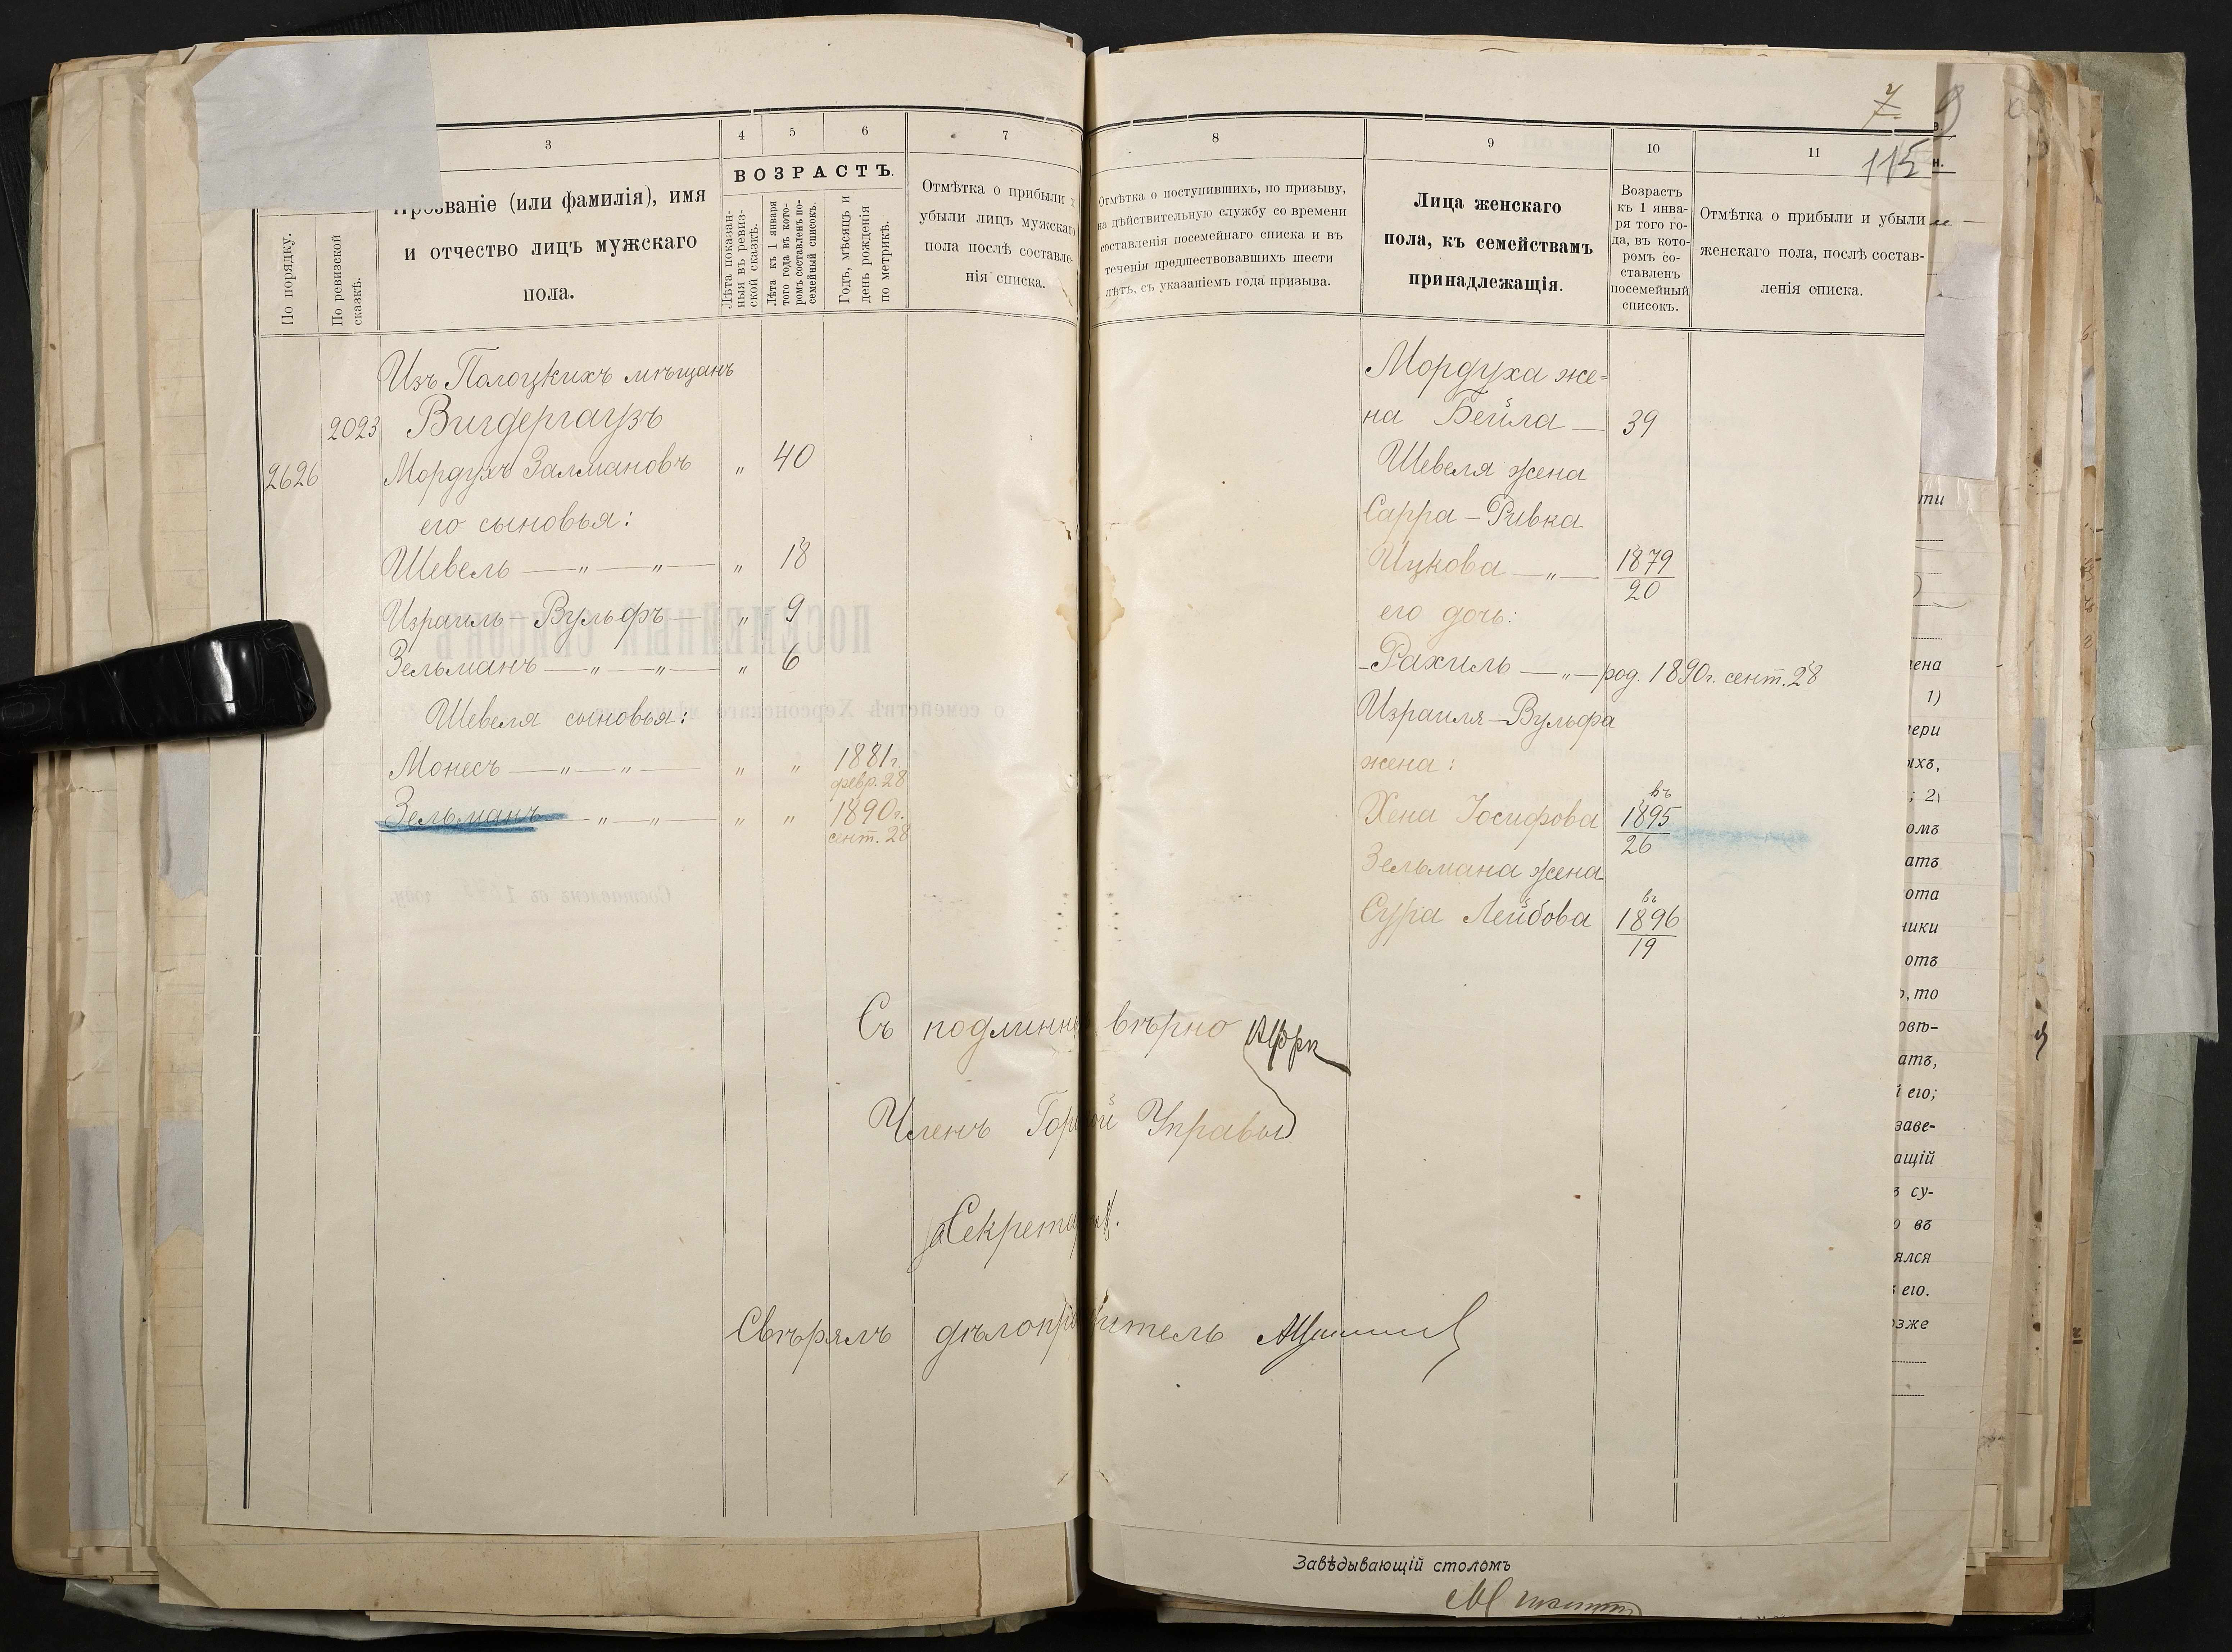 3
4
5
6
7
ВОЗРАСТЪ.
По порядку.
По ревизской
сказкѣ.
Прозваніе (или фамилія), имя
и отчество лицъ мужскаго
пола.
Лѣта показан-
ныя въ ревиз-
ской сказкѣ.
Лѣта къ 1 января
того года въ кото-
ромъ составленъ по-
семейный списокъ.
Годъ, мѣсяцъ и
день рожденія
по метрикѣ.
Отмѣтка о прибыли и
убыли лицъ мужскаго
пола послѣ составле-
нія списка.
Изъ Полоцкихъ мѣщанъ
2023 Вигдергаузъ
2626 Мордухъ Залмановъ „ 40
его сыновья:
Шевель — „ — „ — „ 18
Израиль-Вульфъ — „ 9
Зельманъ — „ — „ — „ 6
Шевеля сыновья:
Монесъ — „ — „ — „ „ 1881г.
февр. 28
Зельманъ — „ — „ — „ „ 1890г.
сент. 28
8
9
10
11
7
9
115
Отмѣтка о поступившихъ, по призыву,
на дѣйствительную службу со времени
составленія посемейнаго списка и въ
теченіи предшествовавшихъ шести
лѣтъ, съ указаніемъ года призыва.
Лица женскаго
пола, къ семействамъ
принадлежащія.
Возрастъ
къ 1 янва-
ря того го-
да, въ кото-
ромъ со-
ставленъ
посемейный
списокъ.
Отмѣтка о прибыли и убыли
женскаго пола, послѣ состав-
ленія списка.
Мордуха же=
на Бейла — 39
Шевеля жена
Сарра-Ривка
Ицкова — „ — 1879
20
его дочь:
-Рахиль — „ — род. 1890г. сент. 28
Израиля-Вульфа
жена:
въ
Хена Іосифова 1895
26
Зельмана жена
въ
Сура Лейбова 1896
19
Съ подлиннымъ вѣрно
Членъ Горской Управы
за Секретаря.
Свѣрялъ дѣлопроизводитель
Завѣдывающій столомъ